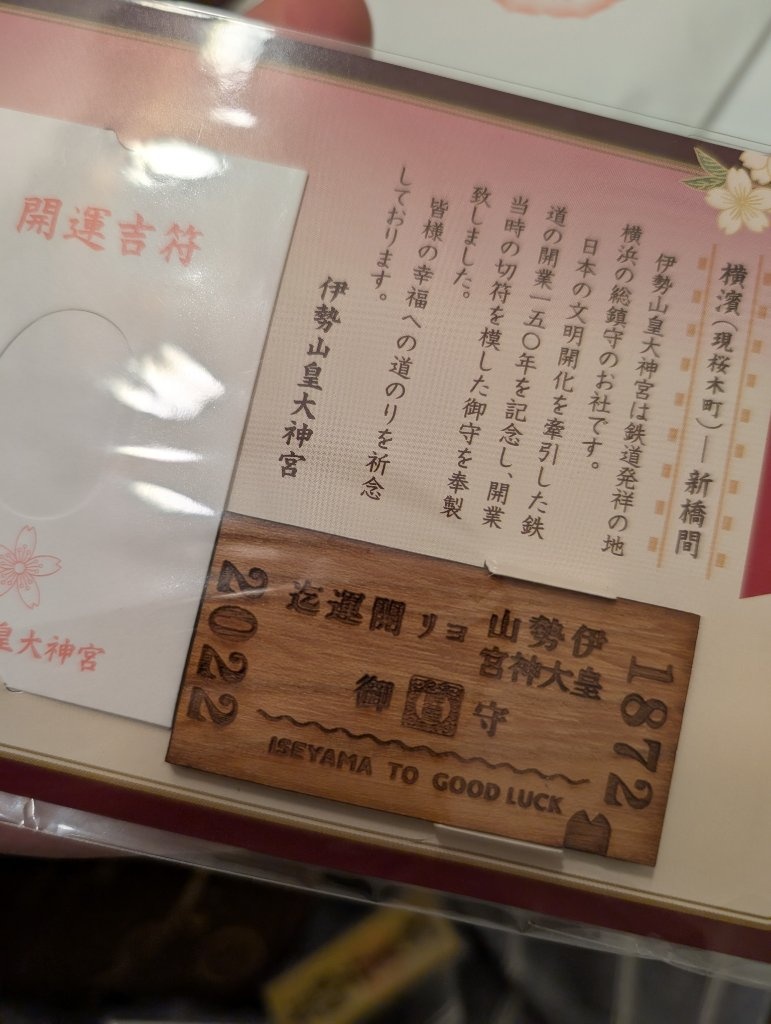 横濱（現桜木町）―新橋間
伊勢山皇大神宮は鉄道発祥の地
横浜の総鎮守のお社です。
日本の文明開化を牽引した鉄
道の開業一五〇年を記念し、開業
当時の切符を模した御守を奉製
致しました。
皆様の幸福への道のりを祈念
しております。
伊勢山皇大神宮
開運吉符
皇大神宮
1872
伊勢山
皇大神宮
ヨリ開運迄
御守
ISEYAMA TO GOOD LUCK
2022